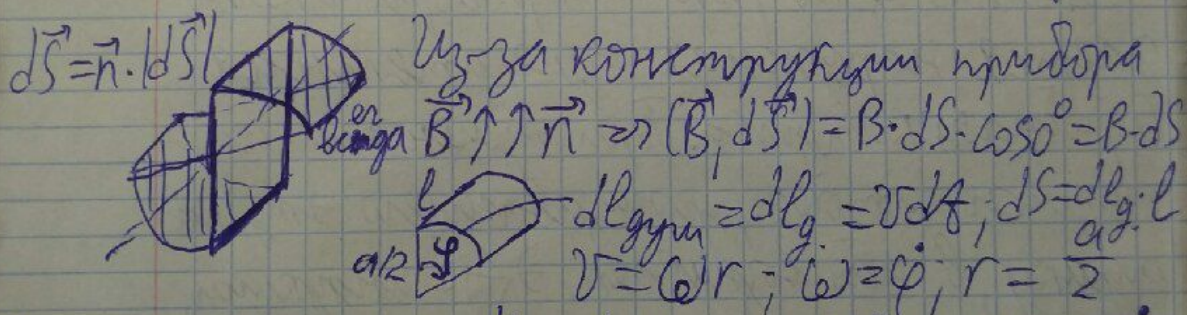 dS⃗ = n⃗ · |dS⃗| Из-за конструкции прибора
всегда B⃗ ↑↑ n⃗ => (B⃗, dS⃗) = B · dS · cos0° = B · dS
l dlдуги = dlд. = vdt; dS = dlд · l
a/2 φ v = ωr; ω = φ̇; r = a/2